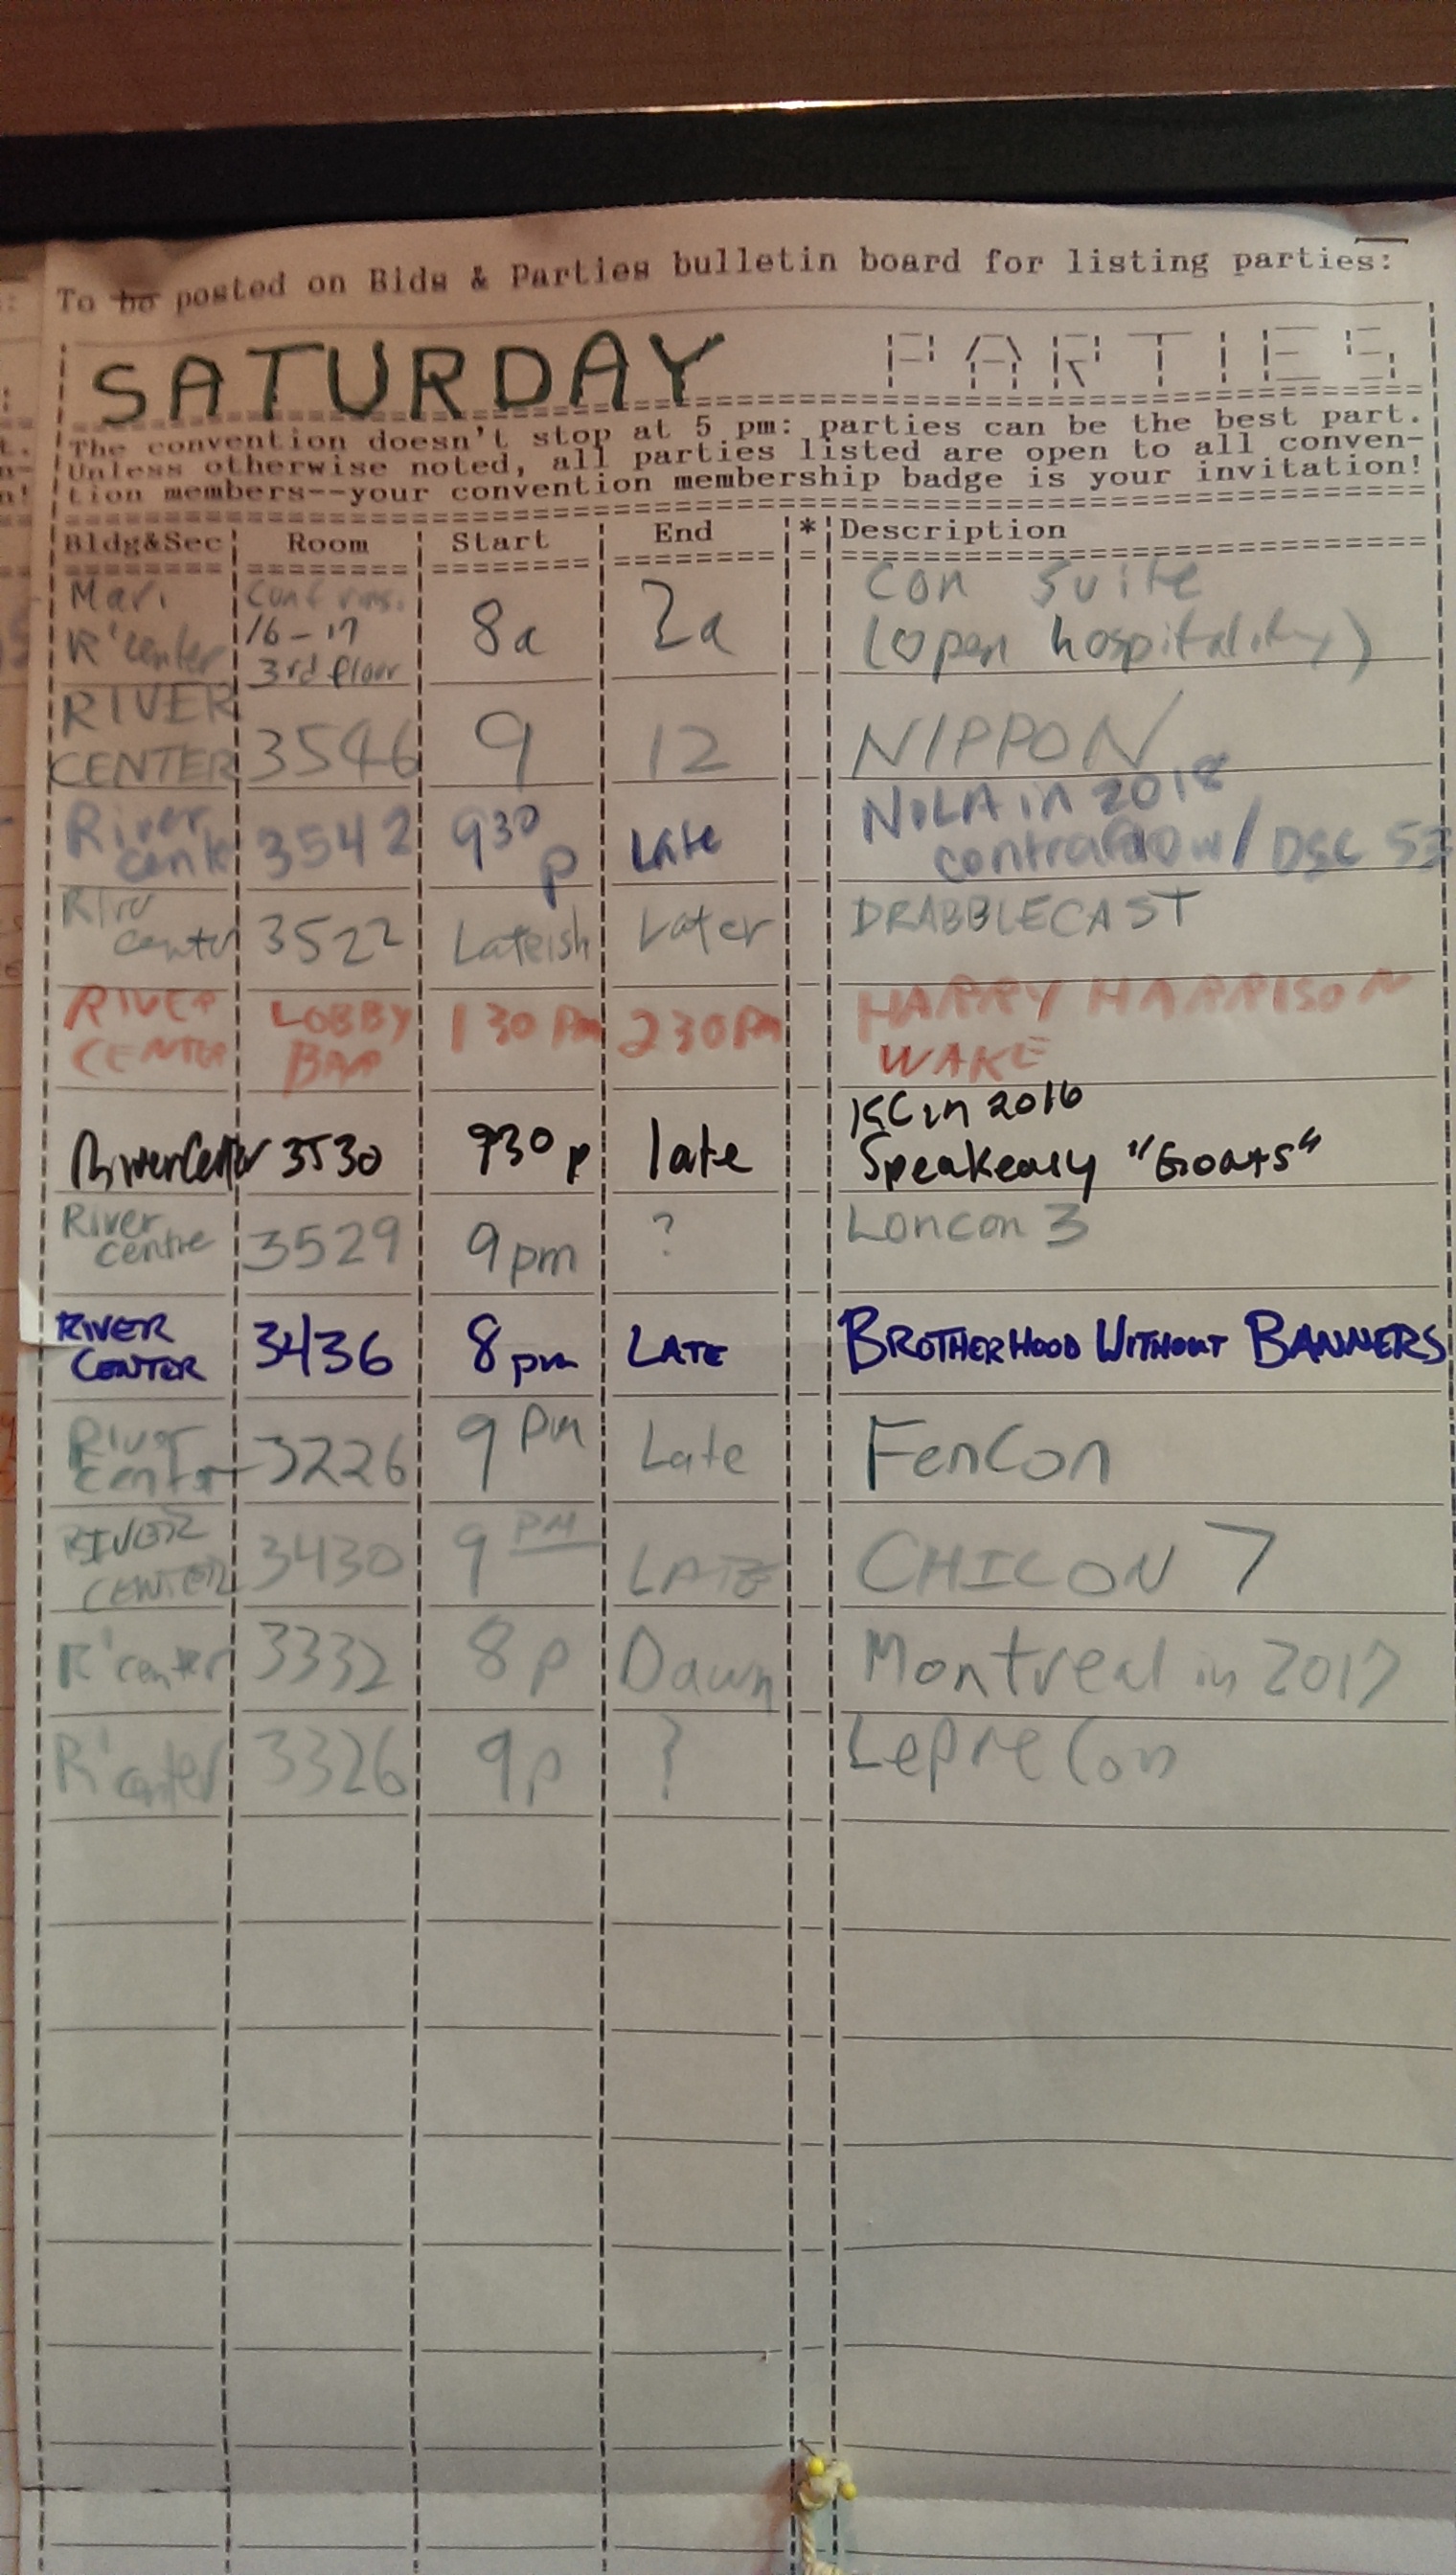 To be posted on Bids & Parties bulletin board for listing parties:
SATURDAY PARTIES
The convention doesn't stop at 5 pm: parties can be the best part.
Unless otherwise noted, all parties listed are open to all conven-
tion members--your convention membership badge is your invitation!
Bldg&Sec Room Start End * Description
Mari R'center Conf rms. 16-17 3rd floor 8a 2a Con Suite (open hospitality)
RIVER CENTER 3546 9 12 NIPPON
River cente 3542 930 p Late NOLA in 2018 contraflow / DSC 52
River center 3522 Lateish Later DRABBLECAST
RIVER CENTER LOBBY BAR 130 Pm 230 Pm HARRY HARRISON WAKE
RiverCenter 3530 930 p late KC in 2016 Speakeasy "Goats"
River centre 3529 9pm ? Loncon 3
RIVER CENTER 3436 8pm LATE BROTHERHOOD WITHOUT BANNERS
River center 3226 9 pm Late FenCon
RIVER CENTER 3430 9 PM LATE CHICON 7
R'center 3332 8p Dawn Montreal in 2017
R'center 3326 9p ? LepreCon